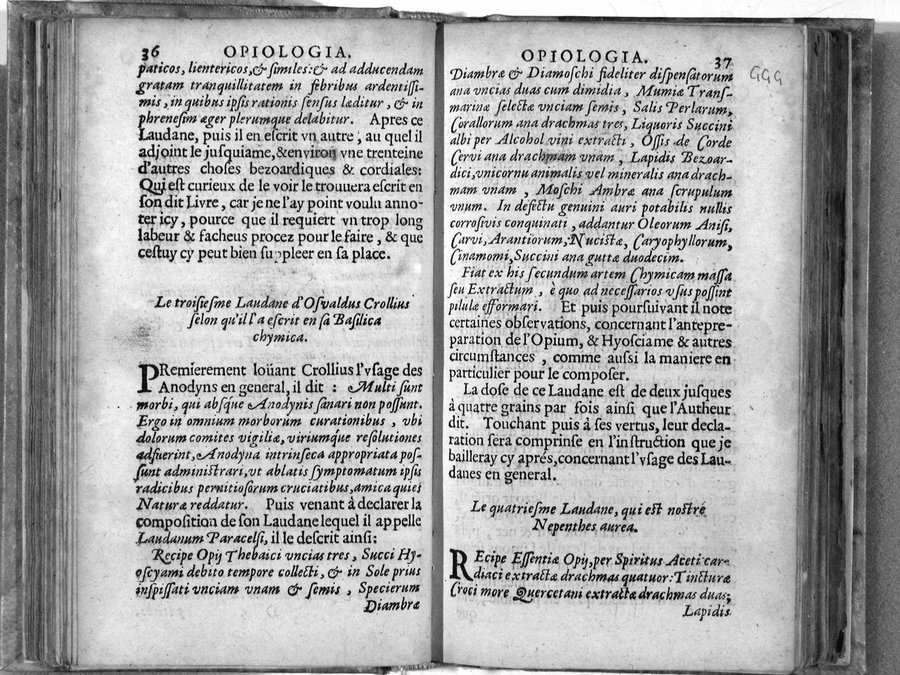 36 OPIOLOGIA.
paticos, lientericos, & similes: & ad adducendam
gratam tranquillitatem in febribus ardentissi-
mis, in quibus ipsis rationis sensus læditur, & in
phrenesim æger plerumque delabitur. Apres ce
Laudane, puis il en escrit vn autre, au quel il
adjoint le jusquiame, & environ vne trenteine
d'autres choses bezoardiques & cordiales:
Qui est curieux de le voir le trouuera escrit en
son dit Livre, car je ne l'ay point voulu anno-
ter icy, pource que il requiert vn trop long
labeur & facheus procez pour le faire, & que
cestuy cy peut bien suppleer en sa place.
Le troisiesme Laudane d'Osvaldus Crollius
selon qu'il l'a escrit en sa Basilica
chymica.
PRemierement loüant Crollius l'vsage des
Anodyns en general, il dit : Multi sunt
morbi, qui absque Anodynis sanari non possunt.
Ergo in omnium morborum curationibus, vbi
dolorum comites vigiliæ, viriumque resolutiones
adfuerint, Anodyna intrinseca appropriata pos-
sunt administrari, vt ablatis symptomatum ipsis
radicibus pernitiosorum cruciatibus, amica quies
Naturæ reddatur. Puis venant à declarer la
composition de son Laudane lequel il appelle
Laudanum Paracelsi, il le descrit ainsi:
Recipe Opij Thebaici vncias tres, Succi Hy-
oscyami debito tempore collecti, & in Sole prius
inspissati vnciam vnam & semis, Specierum
Diambræ
OPIOLOGIA. 37
GGG
Diambræ & Diamoschi fideliter dispensatorum
ana vncias duas cum dimidia, Mumiæ Trans-
marinæ selectæ vnciam semis, Salis Perlarum,
Corallorum ana drachmas tres, Liquoris Succini
albi per Alcohol vini extracti, Ossis de Corde
Cervi ana drachmam vnam, Lapidis Bezoar-
dici, vnicornu animalis vel mineralis ana drach-
mam vnam, Moschi Ambræ ana scrupulum
vnum. In defectu genuini auri potabilis nullis
corrosivis conquinati, addantur Oleorum Anisi,
Carvi, Arantiorum, Nucistæ, Caryophyllorum,
Cinamomi, Succini ana guttæ duodecim.
Fiat ex his secundum artem Chymicam massa
seu Extractum, è quo ad necessarios vsus possint
pilulæ efformari. Et puis poursuivant il note
certaines observations, concernant l'antepre-
paration de l'Opium, & Hyosciame & autres
circumstances, comme aussi la maniere en
particulier pour le composer.
La dose de ce Laudane est de deux jusques
à quatre grains par fois ainsi que l'Autheur
dit. Touchant puis à ses vertus, leur decla-
ration sera comprinse en l'instruction que je
bailleray cy aprés, concernant l'vsage des Lau-
danes en general.
Le quatriesme Laudane, qui est nostre
Nepenthes aurea.
REcipe Essentiæ Opij, per Spiritus Aceti car-
diaci extractæ drachmas quatuor: Tincturæ
Croci more Quercetani extractæ drachmas duas;
Lapidis